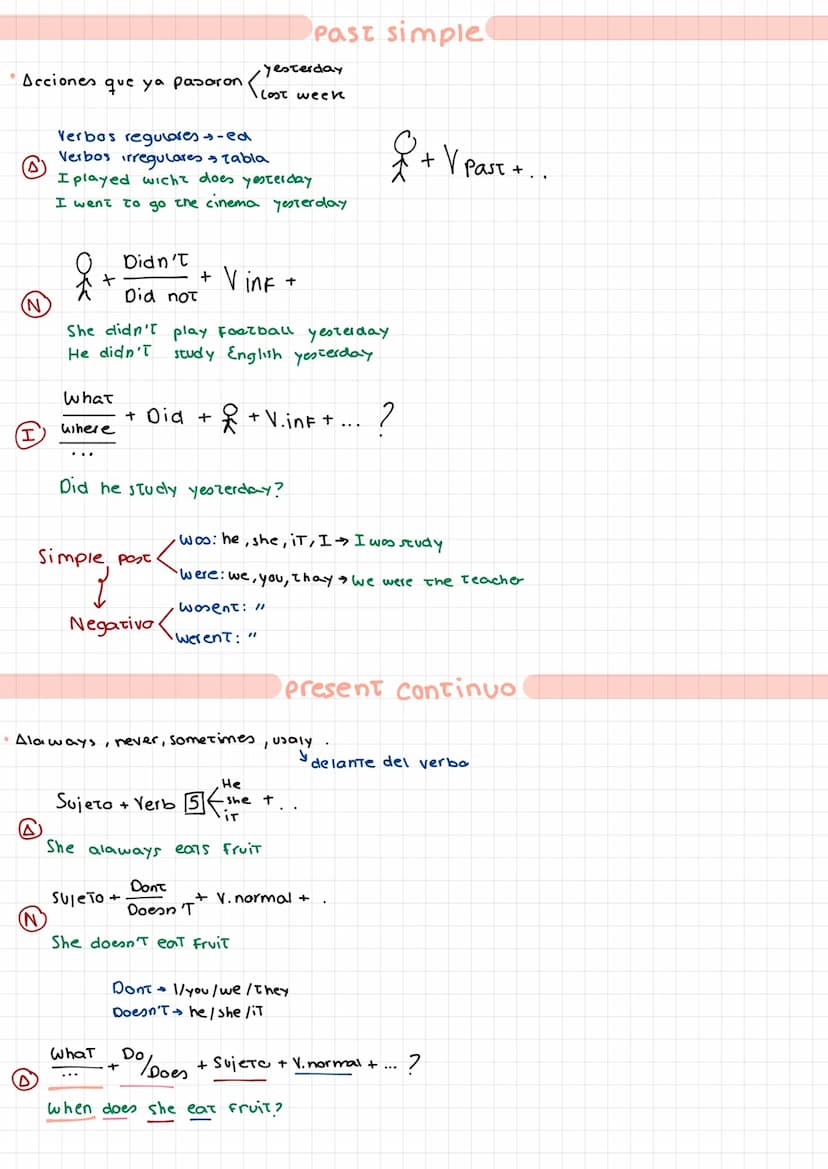 Past simple
· Acciones que ya pasaron yesterday
last week
Verbos regulares → -ed
A Verbos irregulares → tabla
I played wicht does yesterday
I went to go the cinema yesterday
+ V past + ..
+ Didn't / Did not + V inf +
N
She didn't play football yesterday
He didn't study English yesterday
What
where + Did + + V.inf + ... ?
...
I
Did he study yesterday?
Simple past was: he, she, it, I → I was study
were: we, you, thay → we were the teacher
Negativo wasent: "
werent: "
present continuo
· Alaways, never, sometimes, usaly.
delante del verbo
Sujeto + Verb s He she it + ..
A
She alaways eats fruit
Sujeto + Dont / Doesn't + V. normal + .
N
She doesn't eat fruit
Dont → I/you/we/they
Doesn't → he/she/it
What ... + Do/Does + Sujeto + V. normal + ... ?
A
When does she eat fruit?